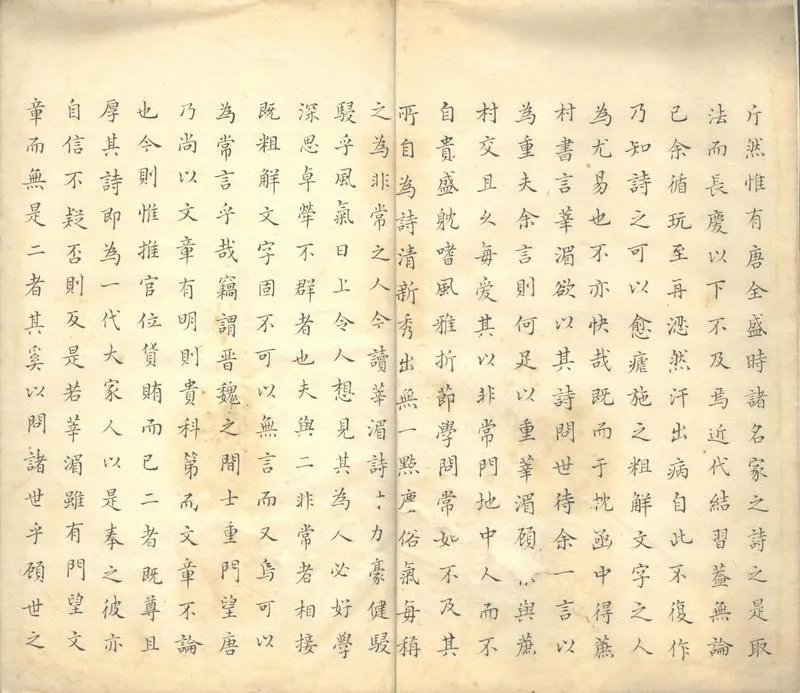 斤然惟有唐全盛時諸名家之詩之是取
法而長慶以下不及焉近代結習葢無論
已余循玩至再涊然汗出病自此不復作
乃知詩之可以愈瘧施之粗解文字之人
為尤易也不亦快哉既而于枕函中得蔗
村書言莘湄欲以其詩問世待余一言以
為重夫余言則何足以重莘湄顧與蔗
村交且久每愛其以非常門地中人而不
自貴盛躭嗜風雅折節學問常如不及其
所自為詩清新秀出無一點塵俗氣每稱
之為非常之人今讀莘湄詩力豪健駸
駸乎風氣日上令人想見其為人必好學
深思卓犖不群者也夫與二非常者相接
既粗解文字固不可以無言而又烏可以
為常言乎哉竊謂晋魏之間士重門望唐
乃尚以文章有明則貴科第而文章不論
也今則惟推官位貲賄而已二者既尊且
厚其詩即為一代大家人以是奉之彼亦
自信不疑否則反是若莘湄雖有門望文
章而無是二者其奚以問諸世乎顧世之